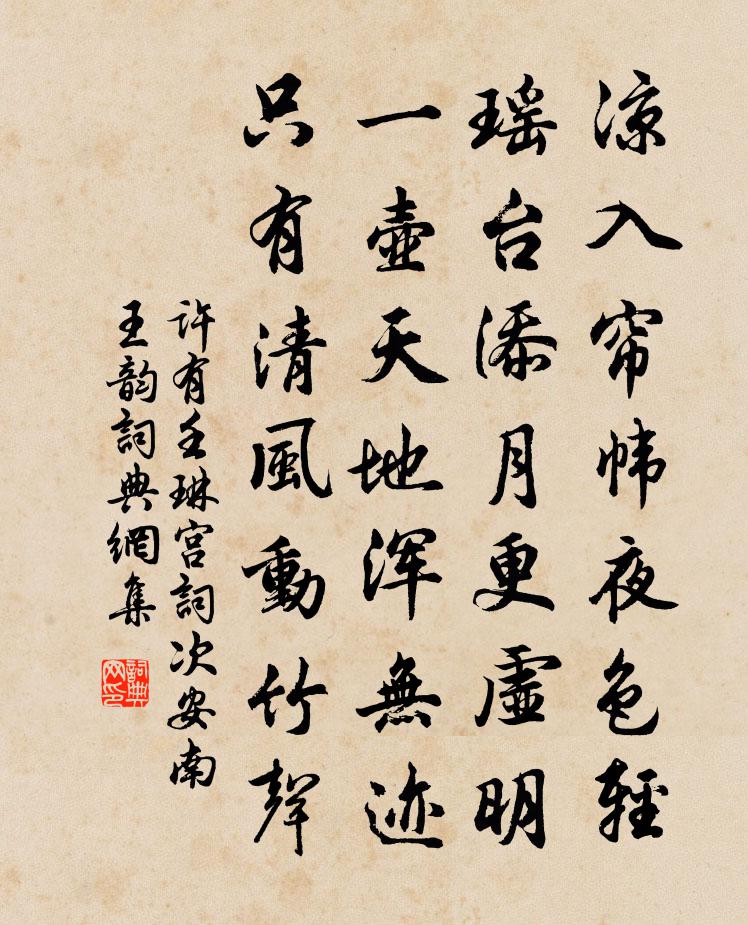 凉入帘帏夜色輕
瑶台添月更虚明
一壺天地浑無迹
只有清風動竹聲
許有壬琳宫詞次安南
王韵詞典網集
詞典网印